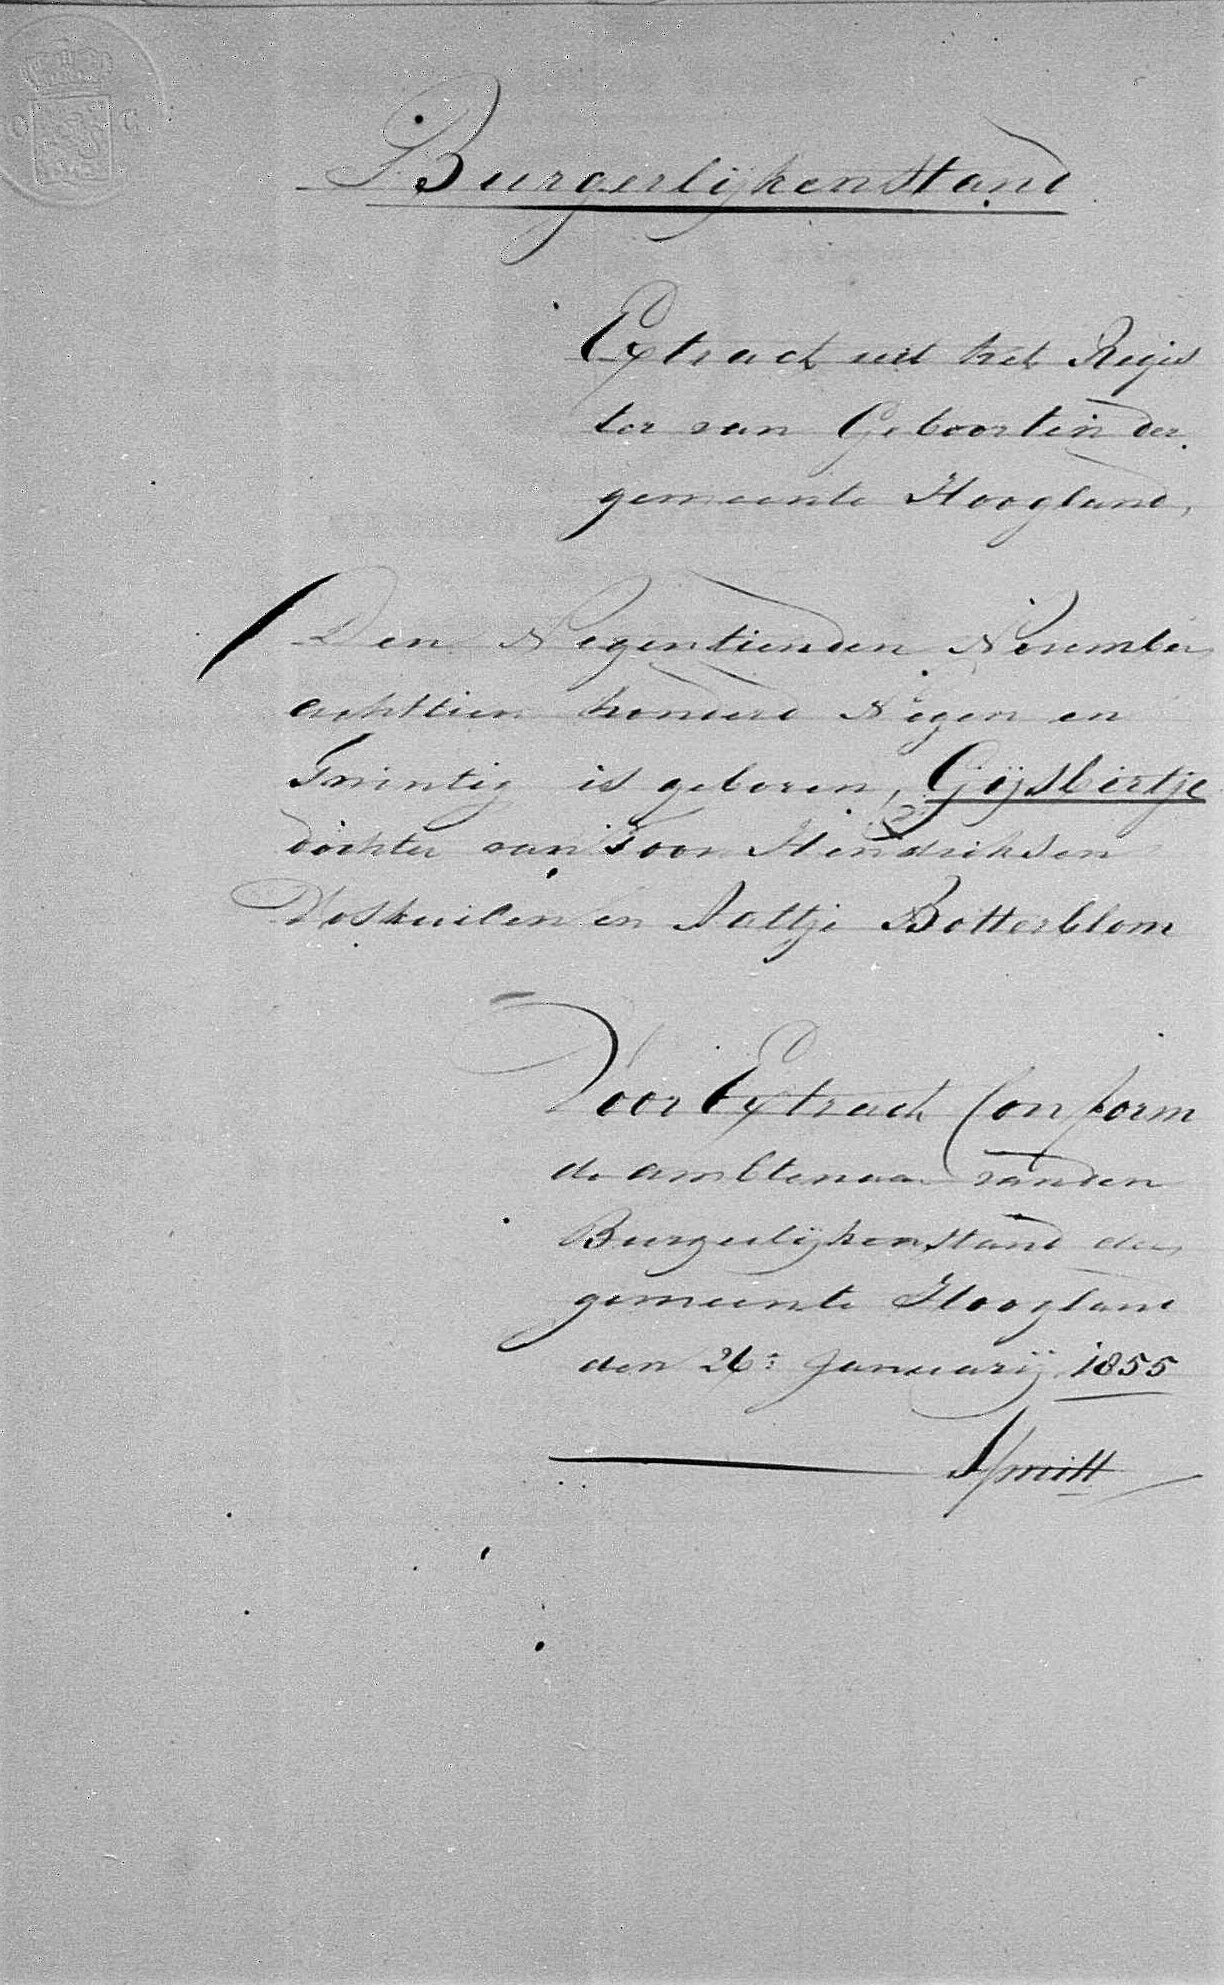 Burgerlijken Stand
Extract uit het Regis
ter van Geboorten der
gemeente Hoogland,
Den Negentienden November
achttien honderd Negen en
Twintig is geboren, Gijsbertje
dochter van Toon Hendriksen
Voskuilen en Aaltje Botterblom
Voor Extract Conform
de ambtenaar van den
Burgerlijken Stand der
gemeente Hoogland
den 26: Januarij 1855
Smitt